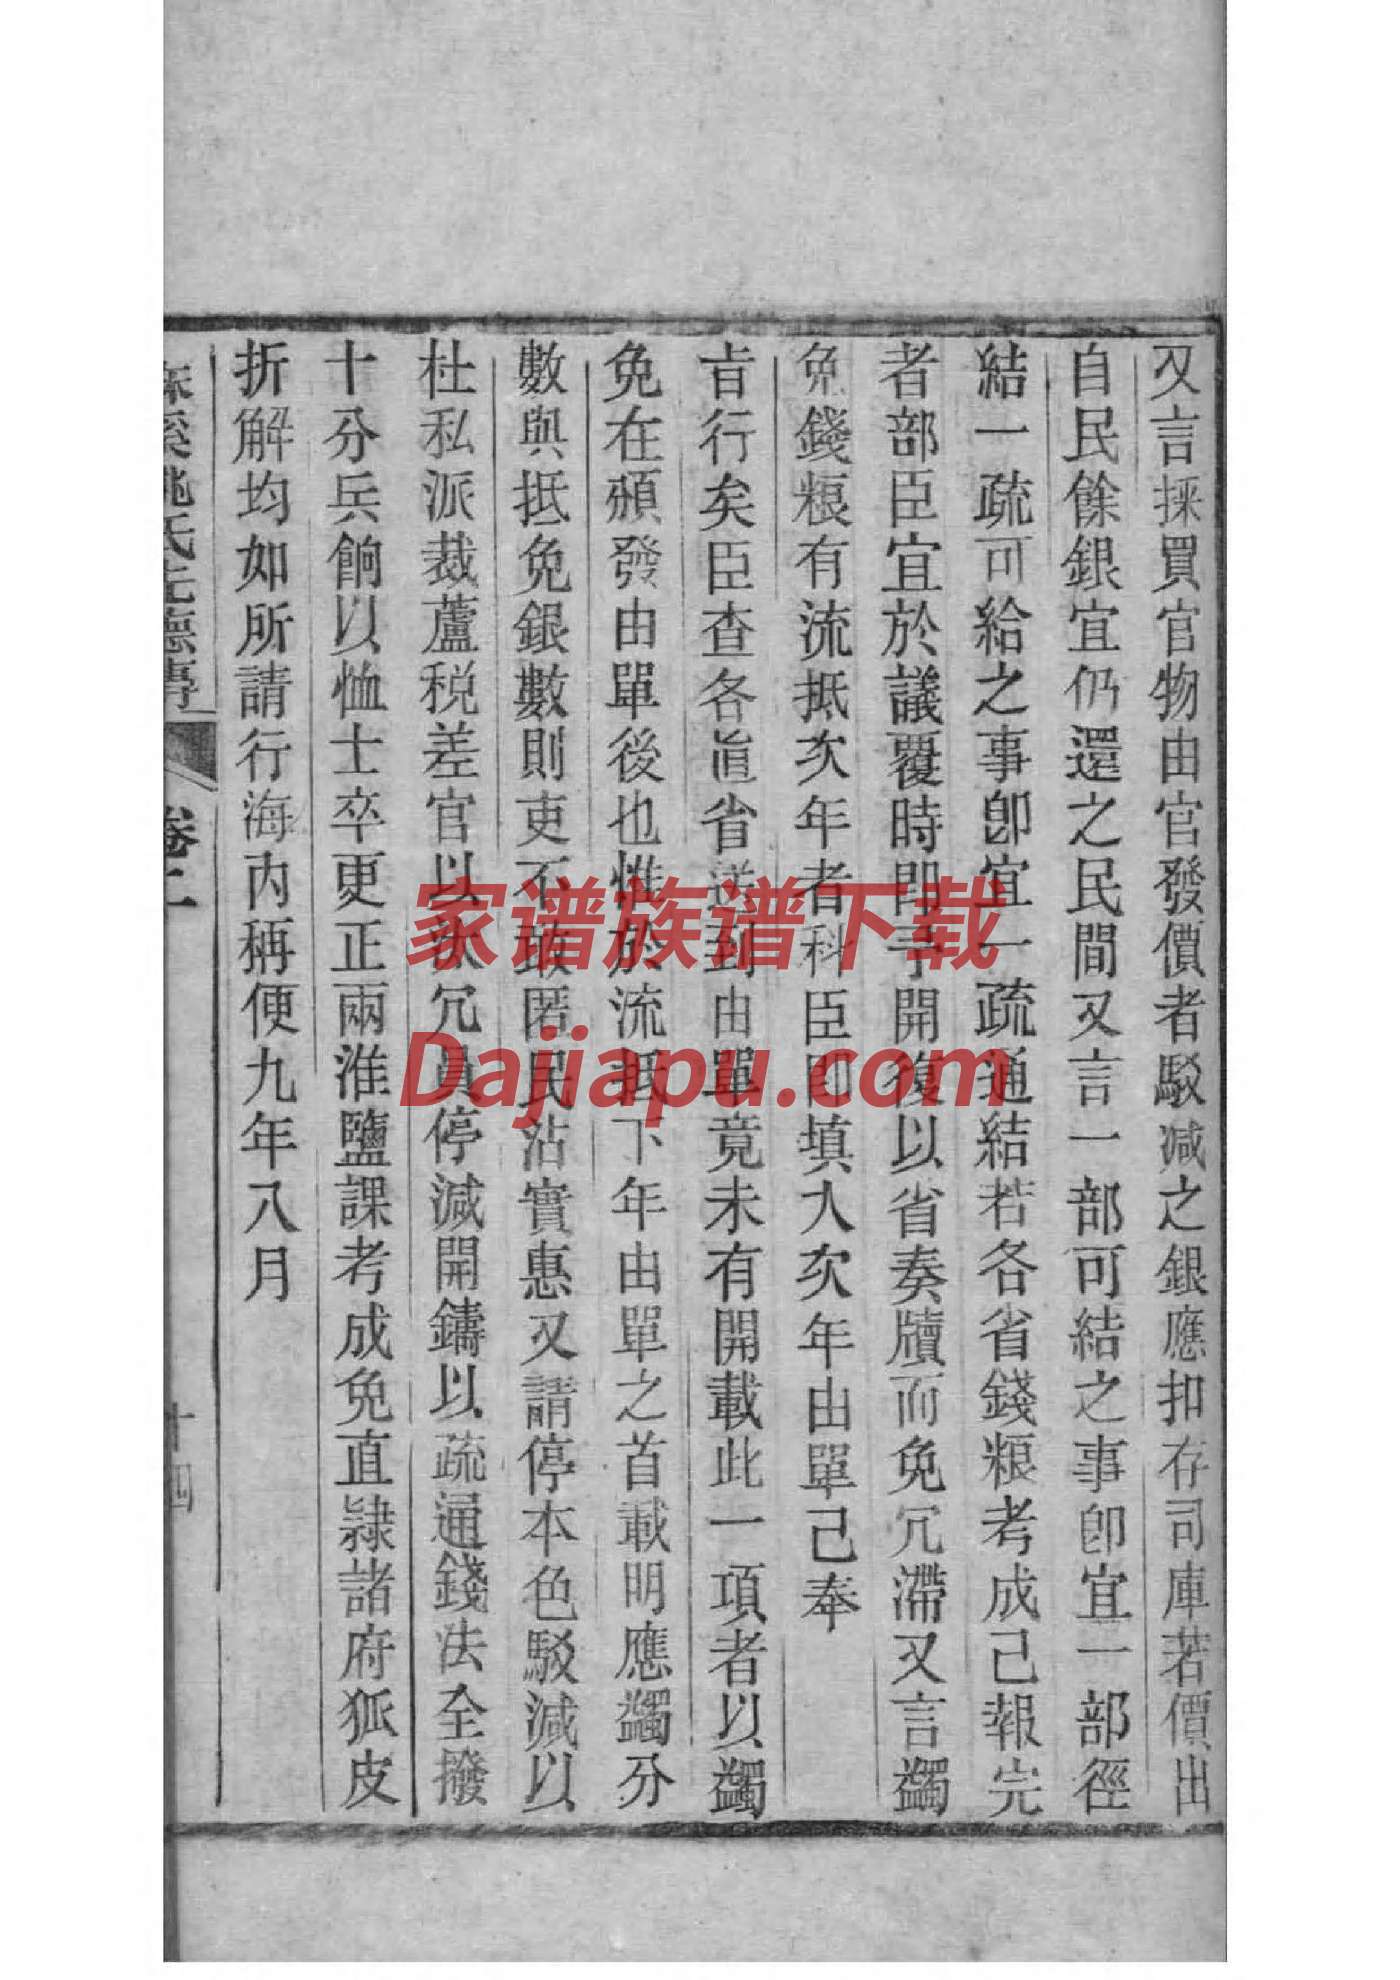 又言採買官物由官發價者駁減之銀應扣存司庫若價出
自民餘銀宜仍還之民間又言一部可結之事卽宜一部徑
結一疏可給之事卽宜一疏通結若各省錢粮考成己報完
者部臣宜於議覆時即予開復以省奏牘而免冗滯又言蠲
免錢粮有流抵次年者科臣因填入次年由單己奉
旨行矣臣查各直省送到由單竟未有開載此一項者以蠲
免在頒發由單後也惟於流抵下年由單之首載明應蠲分
數與抵免銀數則吏不敢匿民沾實惠又請停本色駁減以
杜私派裁蘆税差官以汰冗員停減開鑄以疏通錢法全撥
十分兵餉以恤士卒更正兩淮鹽課考成免直隸諸府狐皮
折解均如所請行海内稱便九年八月
麻溪姚氏先德傳 卷二 十四
家谱族谱下载
Dajiapu.com